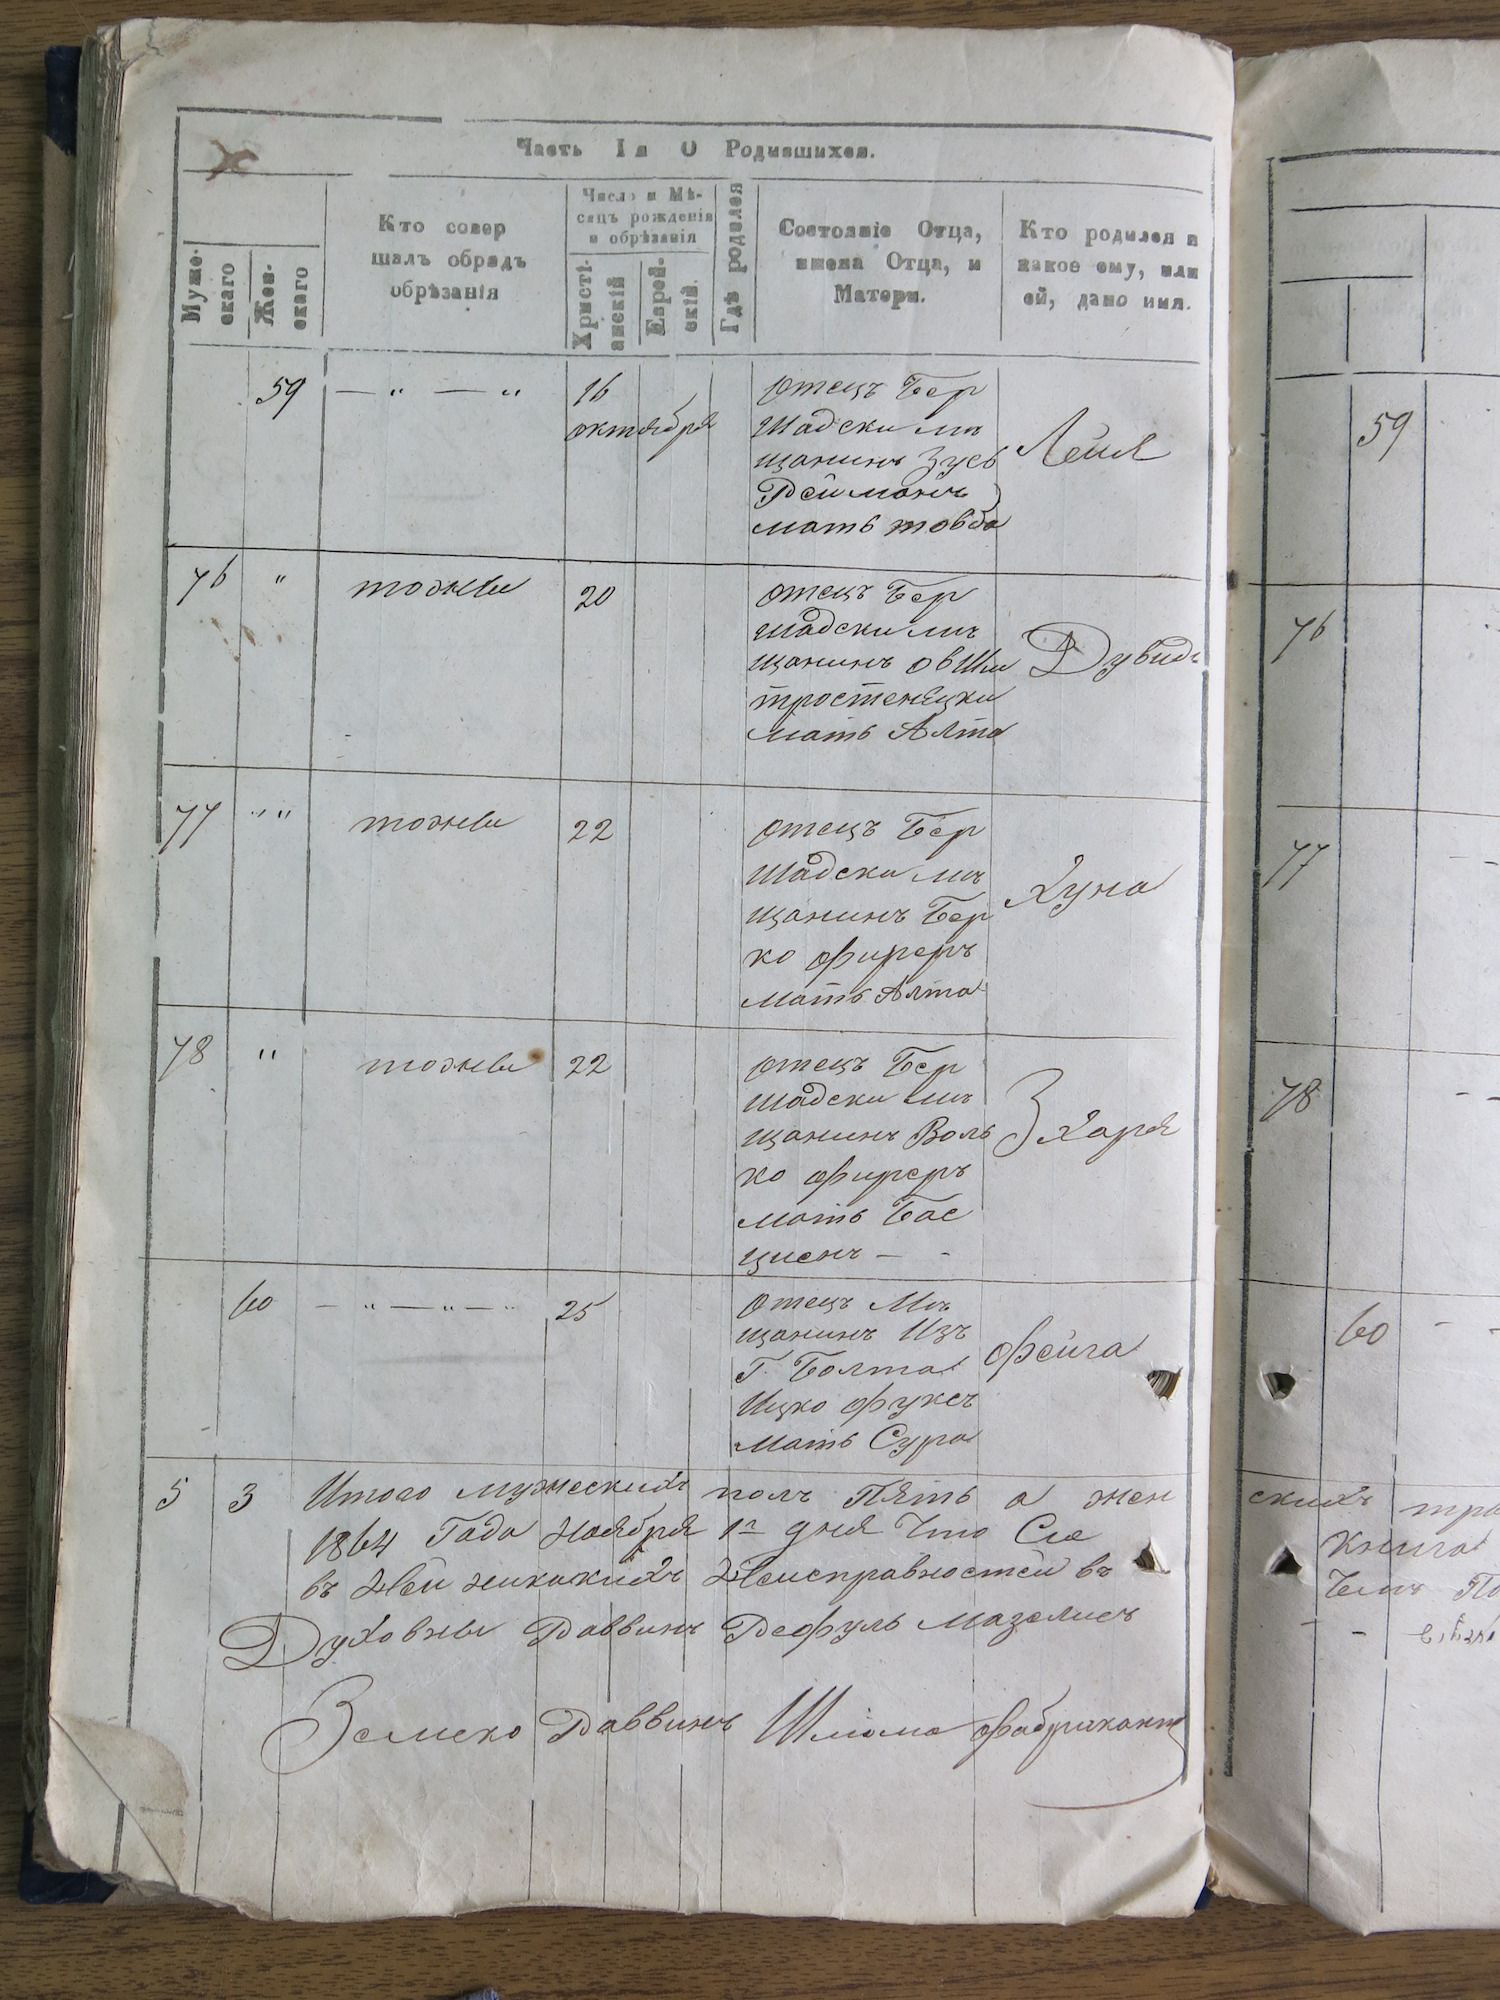 Часть Iя О Родившихся.
Муже-
скаго
Жен-
скаго
Кто совер
шалъ обрядъ
обрѣзанія
Число и Мѣ-
сяцъ рожденія
и обрѣзанія
Христі-
анскій
Еврей-
скій.
Гдѣ родился
Состояніе Отца,
имена Отца, и
Матери.
Кто родился и
какое ему, или
ей, дано имя.
59 — „ — „ 16
октября
отецъ Бер
шадски мѣ
щанинъ Зусь
Рейманъ
мать товба
Лейя
76 " тожъ 20
отецъ Бер
шадски мѣ
щанинъ овши
тростенецки
мать Алта
Дувидъ
77 " " тожъ 22
отецъ Бер
шадски мѣ
щанинъ Бер
ко фиреръ
мать Алта
Хуна
78 " тожъ 22
отецъ Бер
шадски мѣ
щанинъ Воль
ко фиреръ
мать Бас
циенъ —
Зхаря
60 — „ — „ — „ 25
Отецъ Мѣ
щанинъ Изъ
Г. Болта
Ицко фуксъ
мать Сура
фейга
5 3 Итого мужескихъ полъ Пять а жен
1864 Года Ноября 1го дня Что Сие
въ Ней никакихъ Неисправностей въ
Духовны Раввинъ Рефуль мазелисъ
Раввинъ Шлиома фабрикант
59
76
77
78
60
скихъ
книга